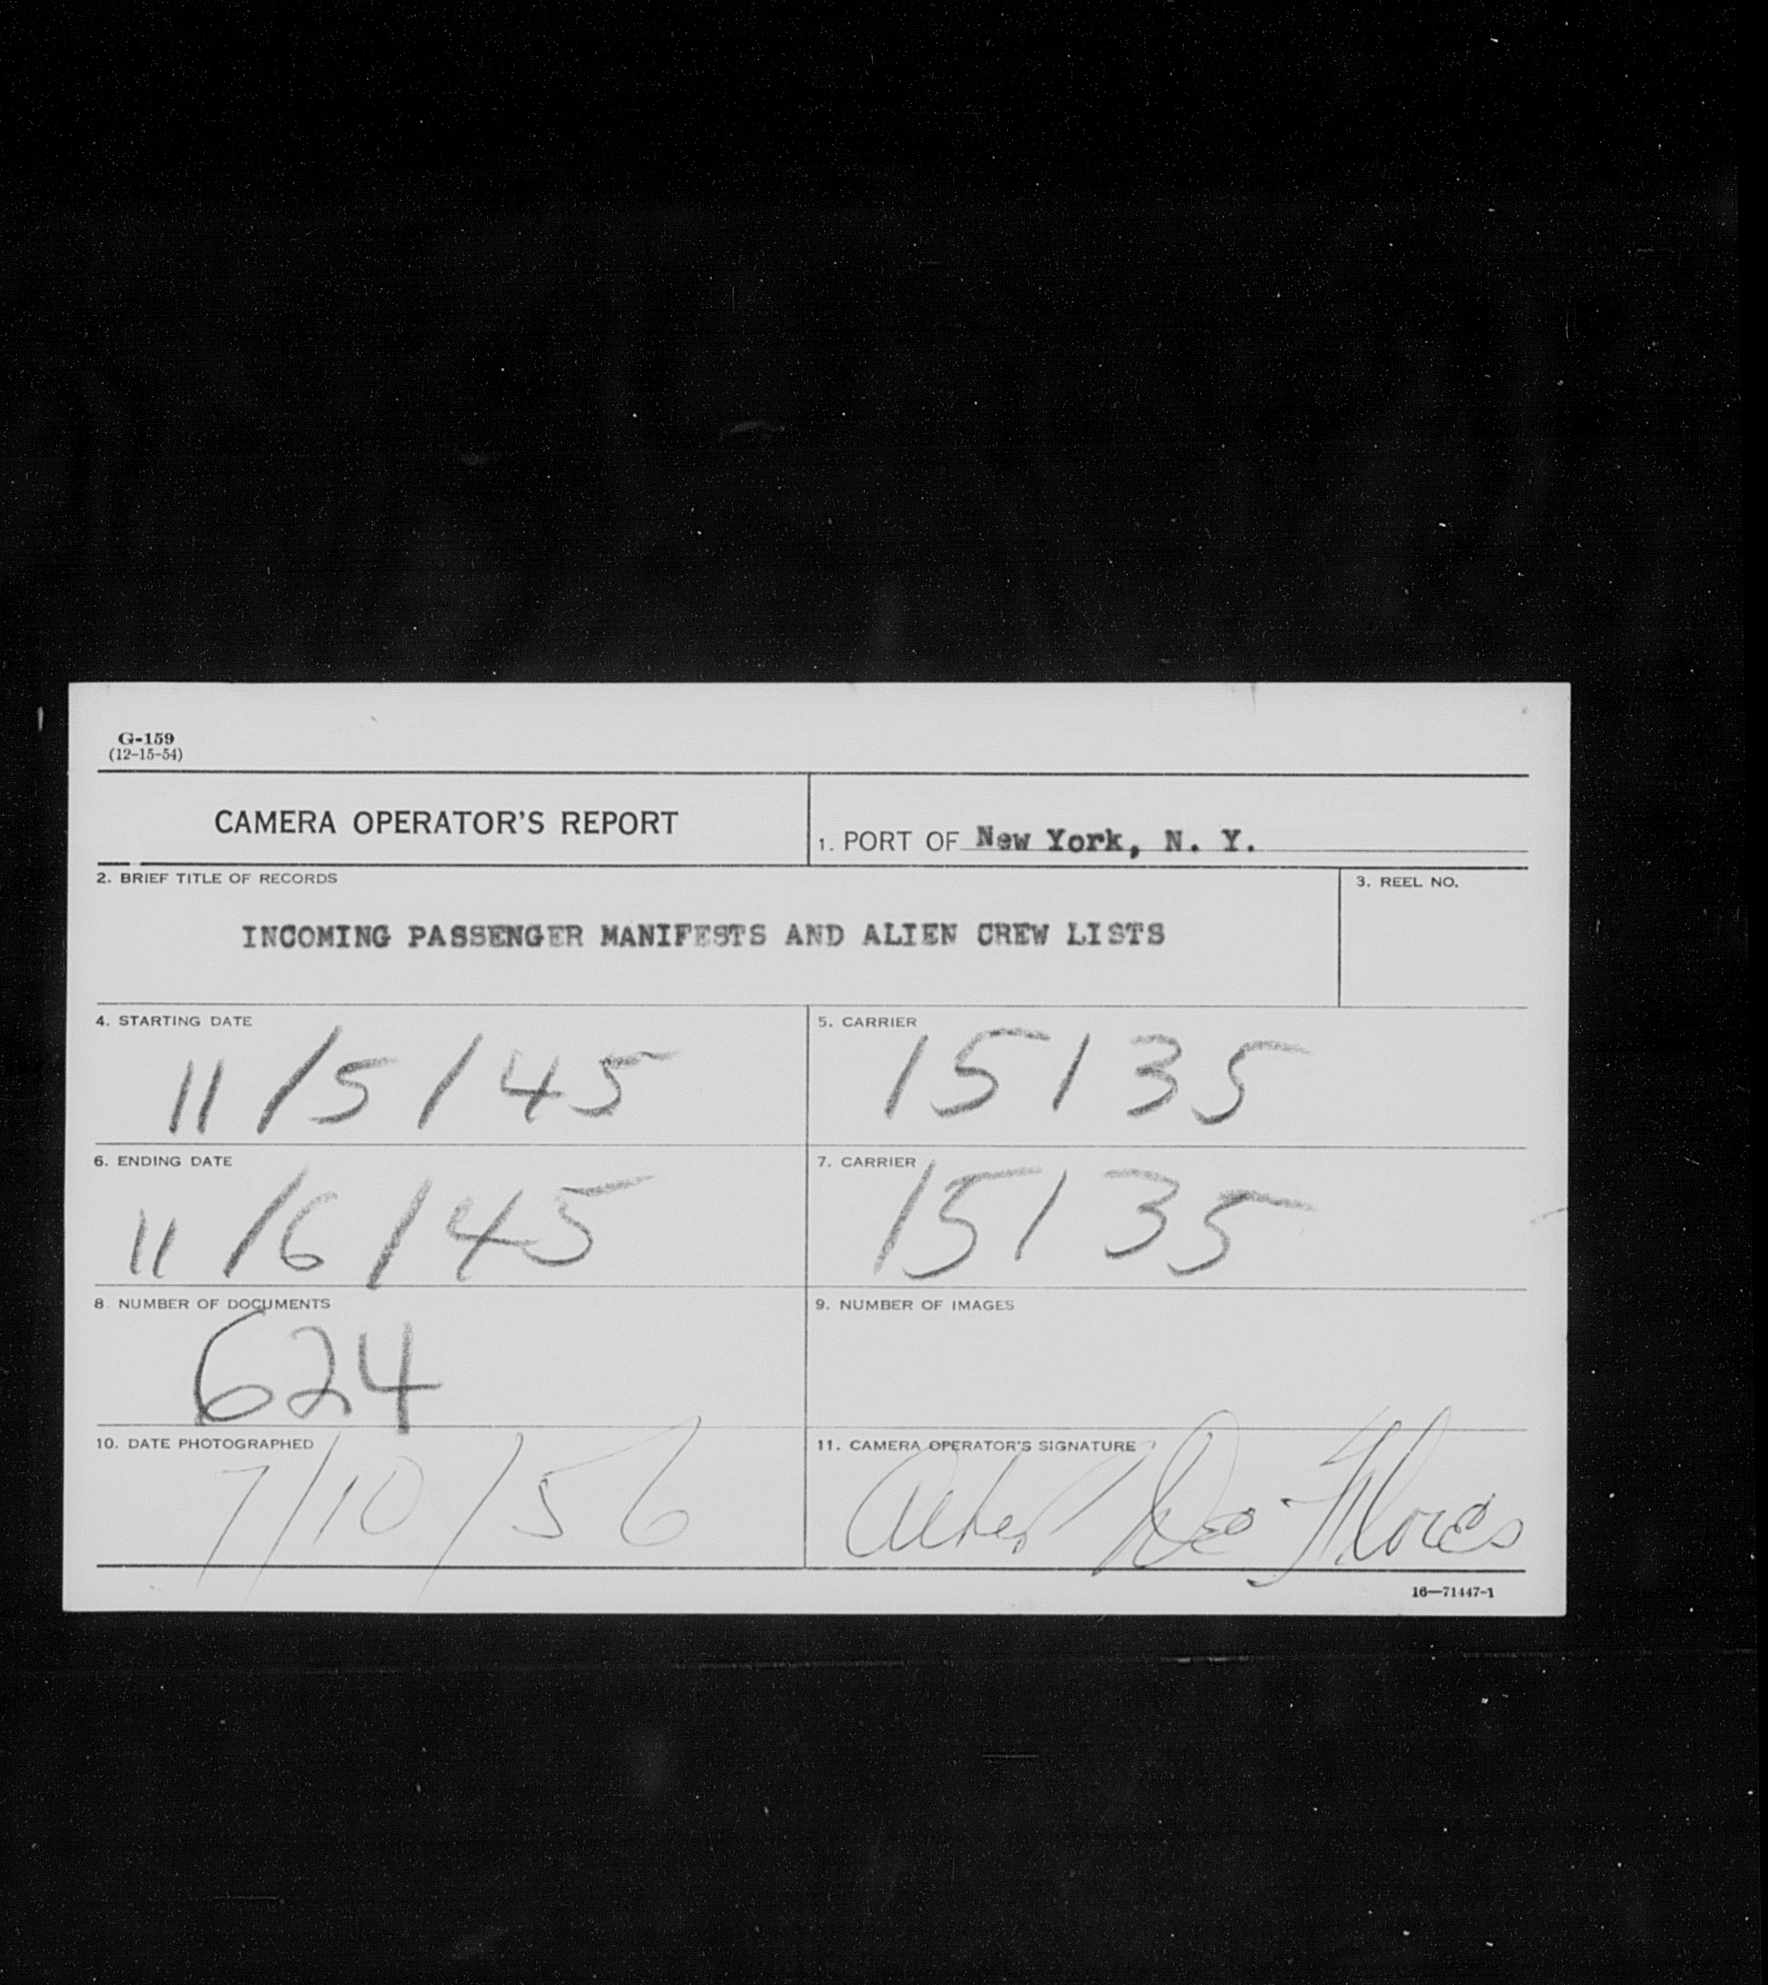 G-159
(12-15-54)
CAMERA OPERATOR'S REPORT
1. PORT OF New York, N. Y.
2. BRIEF TITLE OF RECORDS
3. REEL NO.
INCOMING PASSENGER MANIFESTS AND ALIEN CREW LISTS
4. STARTING DATE
11/5/45
5. CARRIER
15135
6. ENDING DATE
11/6/45
7. CARRIER
15135
8. NUMBER OF DOCUMENTS
624
9. NUMBER OF IMAGES
10. DATE PHOTOGRAPHED
7/10/56
11. CAMERA OPERATOR'S SIGNATURE
De Flores
16—71447-1